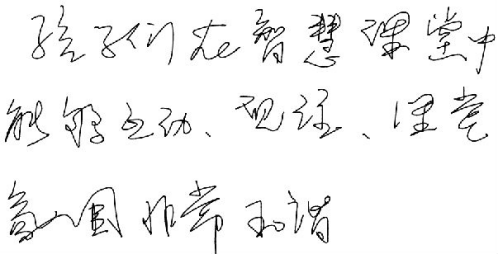 孩子们在智慧课堂中
能够互动、观课、课堂
氛围非常和谐